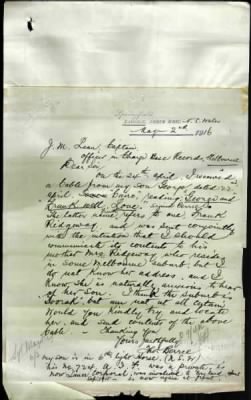 N. S. Wales
May 2nd 1916
J. M. Lean, Captain,
Officer in Charge Base Records, Melbourne
Dear Sir,
On the 24th April I received
a cable from my son George dated 23
April, from Cairo, reading, George and
Frank well, Love,
The latter name, refers to one Frank
Ridgeway, and was sent conjointly
with the intention that I should
communicate its contents to his
mother Mrs Ridgeway who resides
in some Melbourne suburb but I
do not know her address, and I
know she is naturally anxious to hear
of her son. I think the suburb is
but am not at all certain.
Would you kindly try, and locate
her, and send contents of the above
cable. Thanking you
Yours faithfully
my son is in 6th Light Horse (N.S.W.)
his No. 724, A.I.F. was a private, is
now Lance Corporal, was